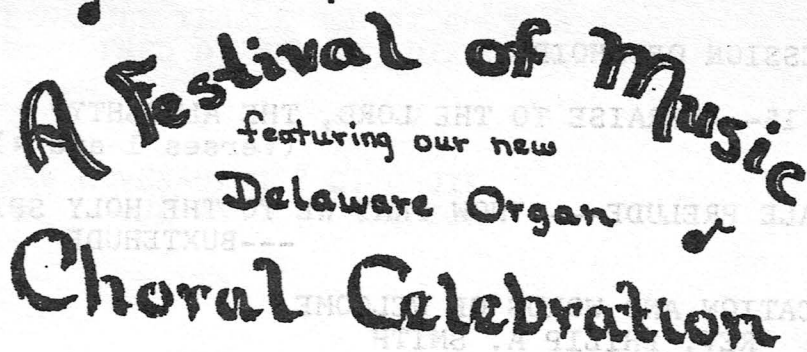 A Festival of Music
featuring our new
Delaware Organ
Choral Celebration